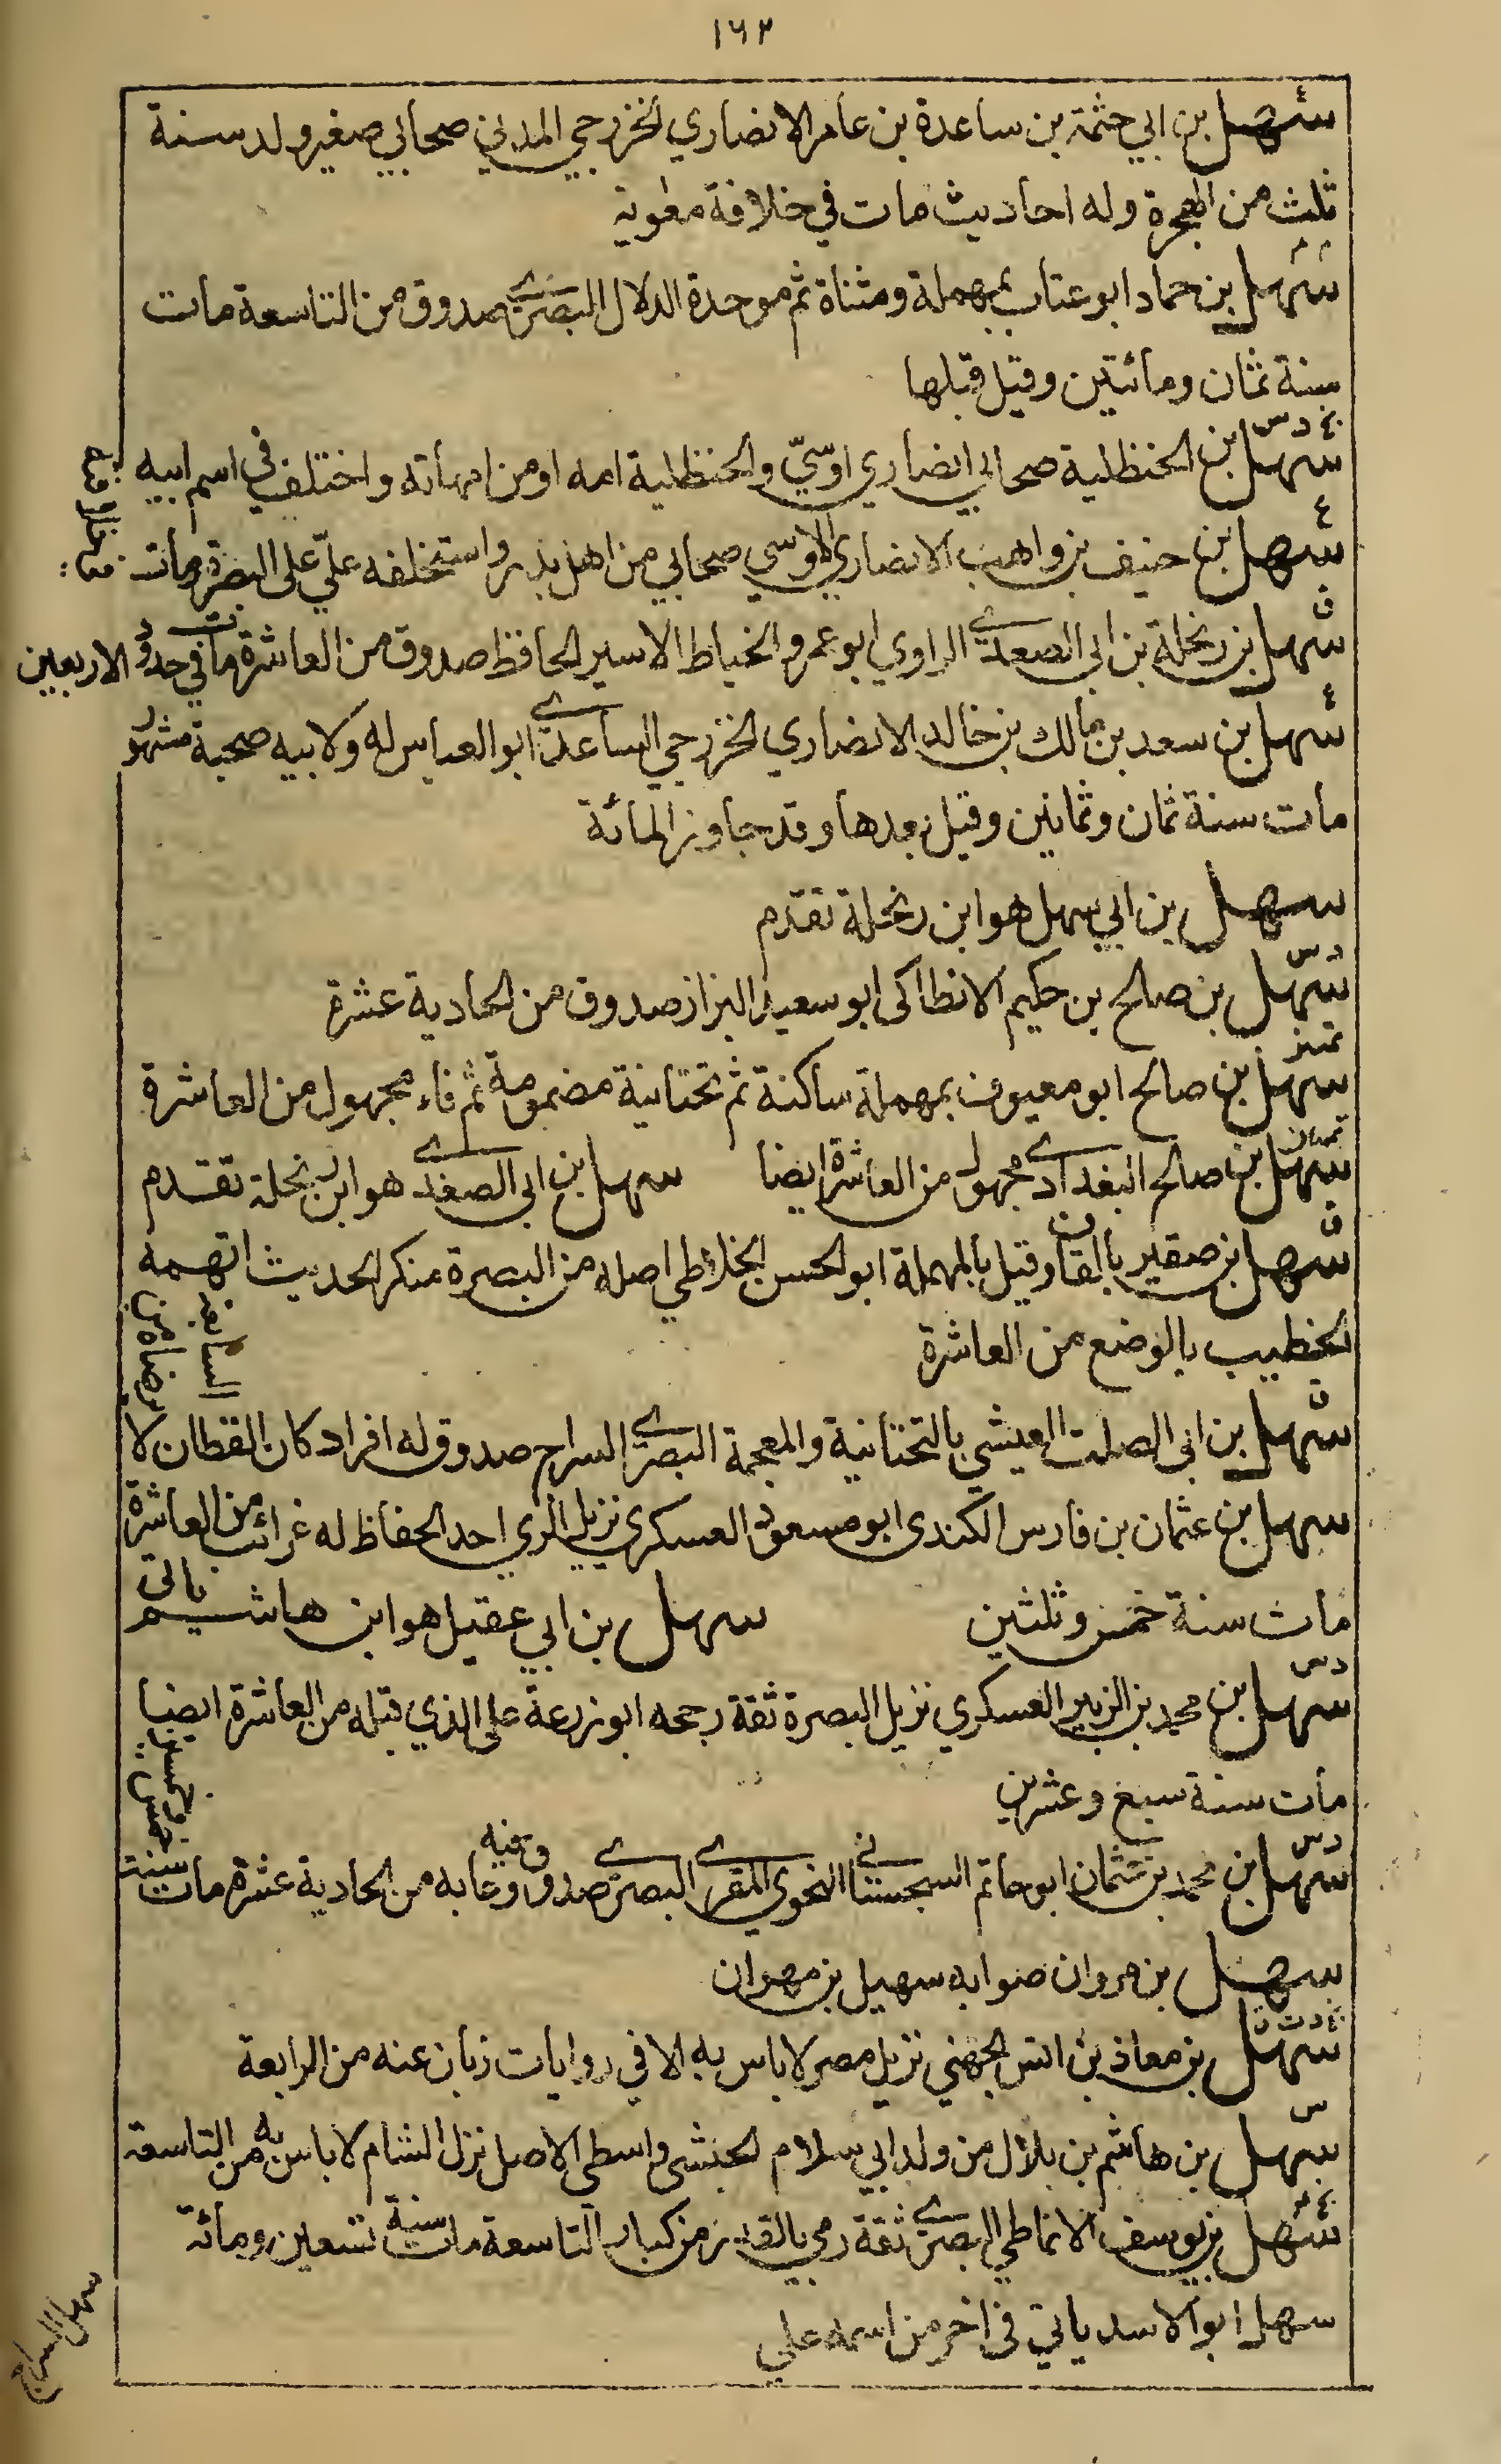 ١٦٢
ع
سهل بن ابي حثمة بن ساعدة بن عامر الانصاري الخزرجي المدني صحابي صغير ولد سنة
ثلث من الهجرة وله احاديث مات في خلافة معوية
م ٤
سهل بن حماد ابو عتاب بمهملة ومثناة ثم موحدة الدلال البصري صدوق من التاسعة مات
سنة ثمان ومائتين وقيل قبلها
بخ د س
سهل بن الحنظلية صحابي انصاري اوسي والحنظلية امه او من امهاته واختلف في اسم ابيه
ع
سهل بن حنيف بن واهب الانصاري الاوسي صحابي من اهل بدر واستخلفه علي على البصرة ومات
ق
سهل بن زنجلة بن ابي الصغدي الرازي ابو عمرو الخياط الاسير الحافظ صدوق من العاشرة مات في حدود الاربعين
ع
سهل بن سعد بن مالك بن خالد الانصاري الخزرجي الساعدي ابو العباس له ولابيه صحبة مشهور
مات سنة ثمان وثمانين وقيل بعدها وقد جاوز المائة
سهل بن ابي سهل هو ابن زنجلة تقدم
د س
سهل بن صالح بن حكيم الانطاكي ابو سعيد البزاز صدوق من الحادية عشرة
تمييز
سهل بن صالح ابو معيوف بمهملة ساكنة ثم تحتانية مضمومة ثم فاء مجهول من العاشرة
سهل بن صالح البغدادي مجهول من العاشرة ايضا سهل بن ابي الصغدي هو ابن زنجلة تقدم
ق
سهل بن صقير بالقاف وقيل بالمهملة ابو الحسن الخلاطي اصله من البصرة منكر الحديث اتهمه
الخطيب بالوضع من العاشرة
ق
سهل بن ابي الصلت العيشي بالتحتانية والمعجمة البصري السراج صدوق له افراد كان القطان لا
يرضاه من السابعة
سهل بن عثمان بن فارس الكندي ابو مسعود العسكري نزيل الري احد الحفاظ له غرائب من العاشرة
مات سنة خمس وثلثين سهل بن ابي عقيل هو ابن هاشم ياتي
د س
سهل بن محمد بن الزبير العسكري نزيل البصرة ثقة رجحه ابو زرعة على الذي قبله من العاشرة ايضا
مات سنة سبع وعشرين
د س
سهل بن محمد بن عثمان ابو حاتم السجستاني النحوي المقرئ البصري صدوق وفيه دعابة من الحادية عشرة مات سنة
خمس وخمسين
سهل بن مروان صوابه سهيل بن مهران
بخ د ت ق
سهل بن معاذ بن انس الجهني نزيل مصر لا باس به الا في روايات زبان عنه من الرابعة
س
سهل بن هاشم بن بلال من ولد ابي سلام الحبشي واسطي الاصل نزل الشام لا باس به من التاسعة
سهل بن يوسف الانماطي البصري ثقة رمي بالقدر من كبار التاسعة مات سنة تسعين ومائة
سهل ابو الاسد ياتي في اخر من اسمه علي
سهل السراج